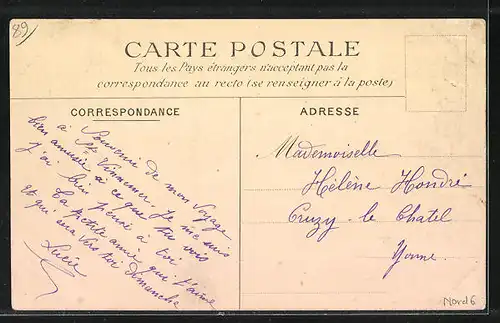 89
CARTE POSTALE
Tous les Pays étrangers n'acceptant pas la
correspondance au recto (se renseigner à la poste)
CORRESPONDANCE
Souvenir de mon voyage
à St Vinnemer. Je me suis
bien amusée à ce que tu vois
j'ai bien pensé à toi
La petite amie qui t'aime
et qui sera vers toi dimanche
Lucie
ADRESSE
Mademoiselle
Hélène Hondré
Cruzy-le Chatel
Yonne.
Nord 6